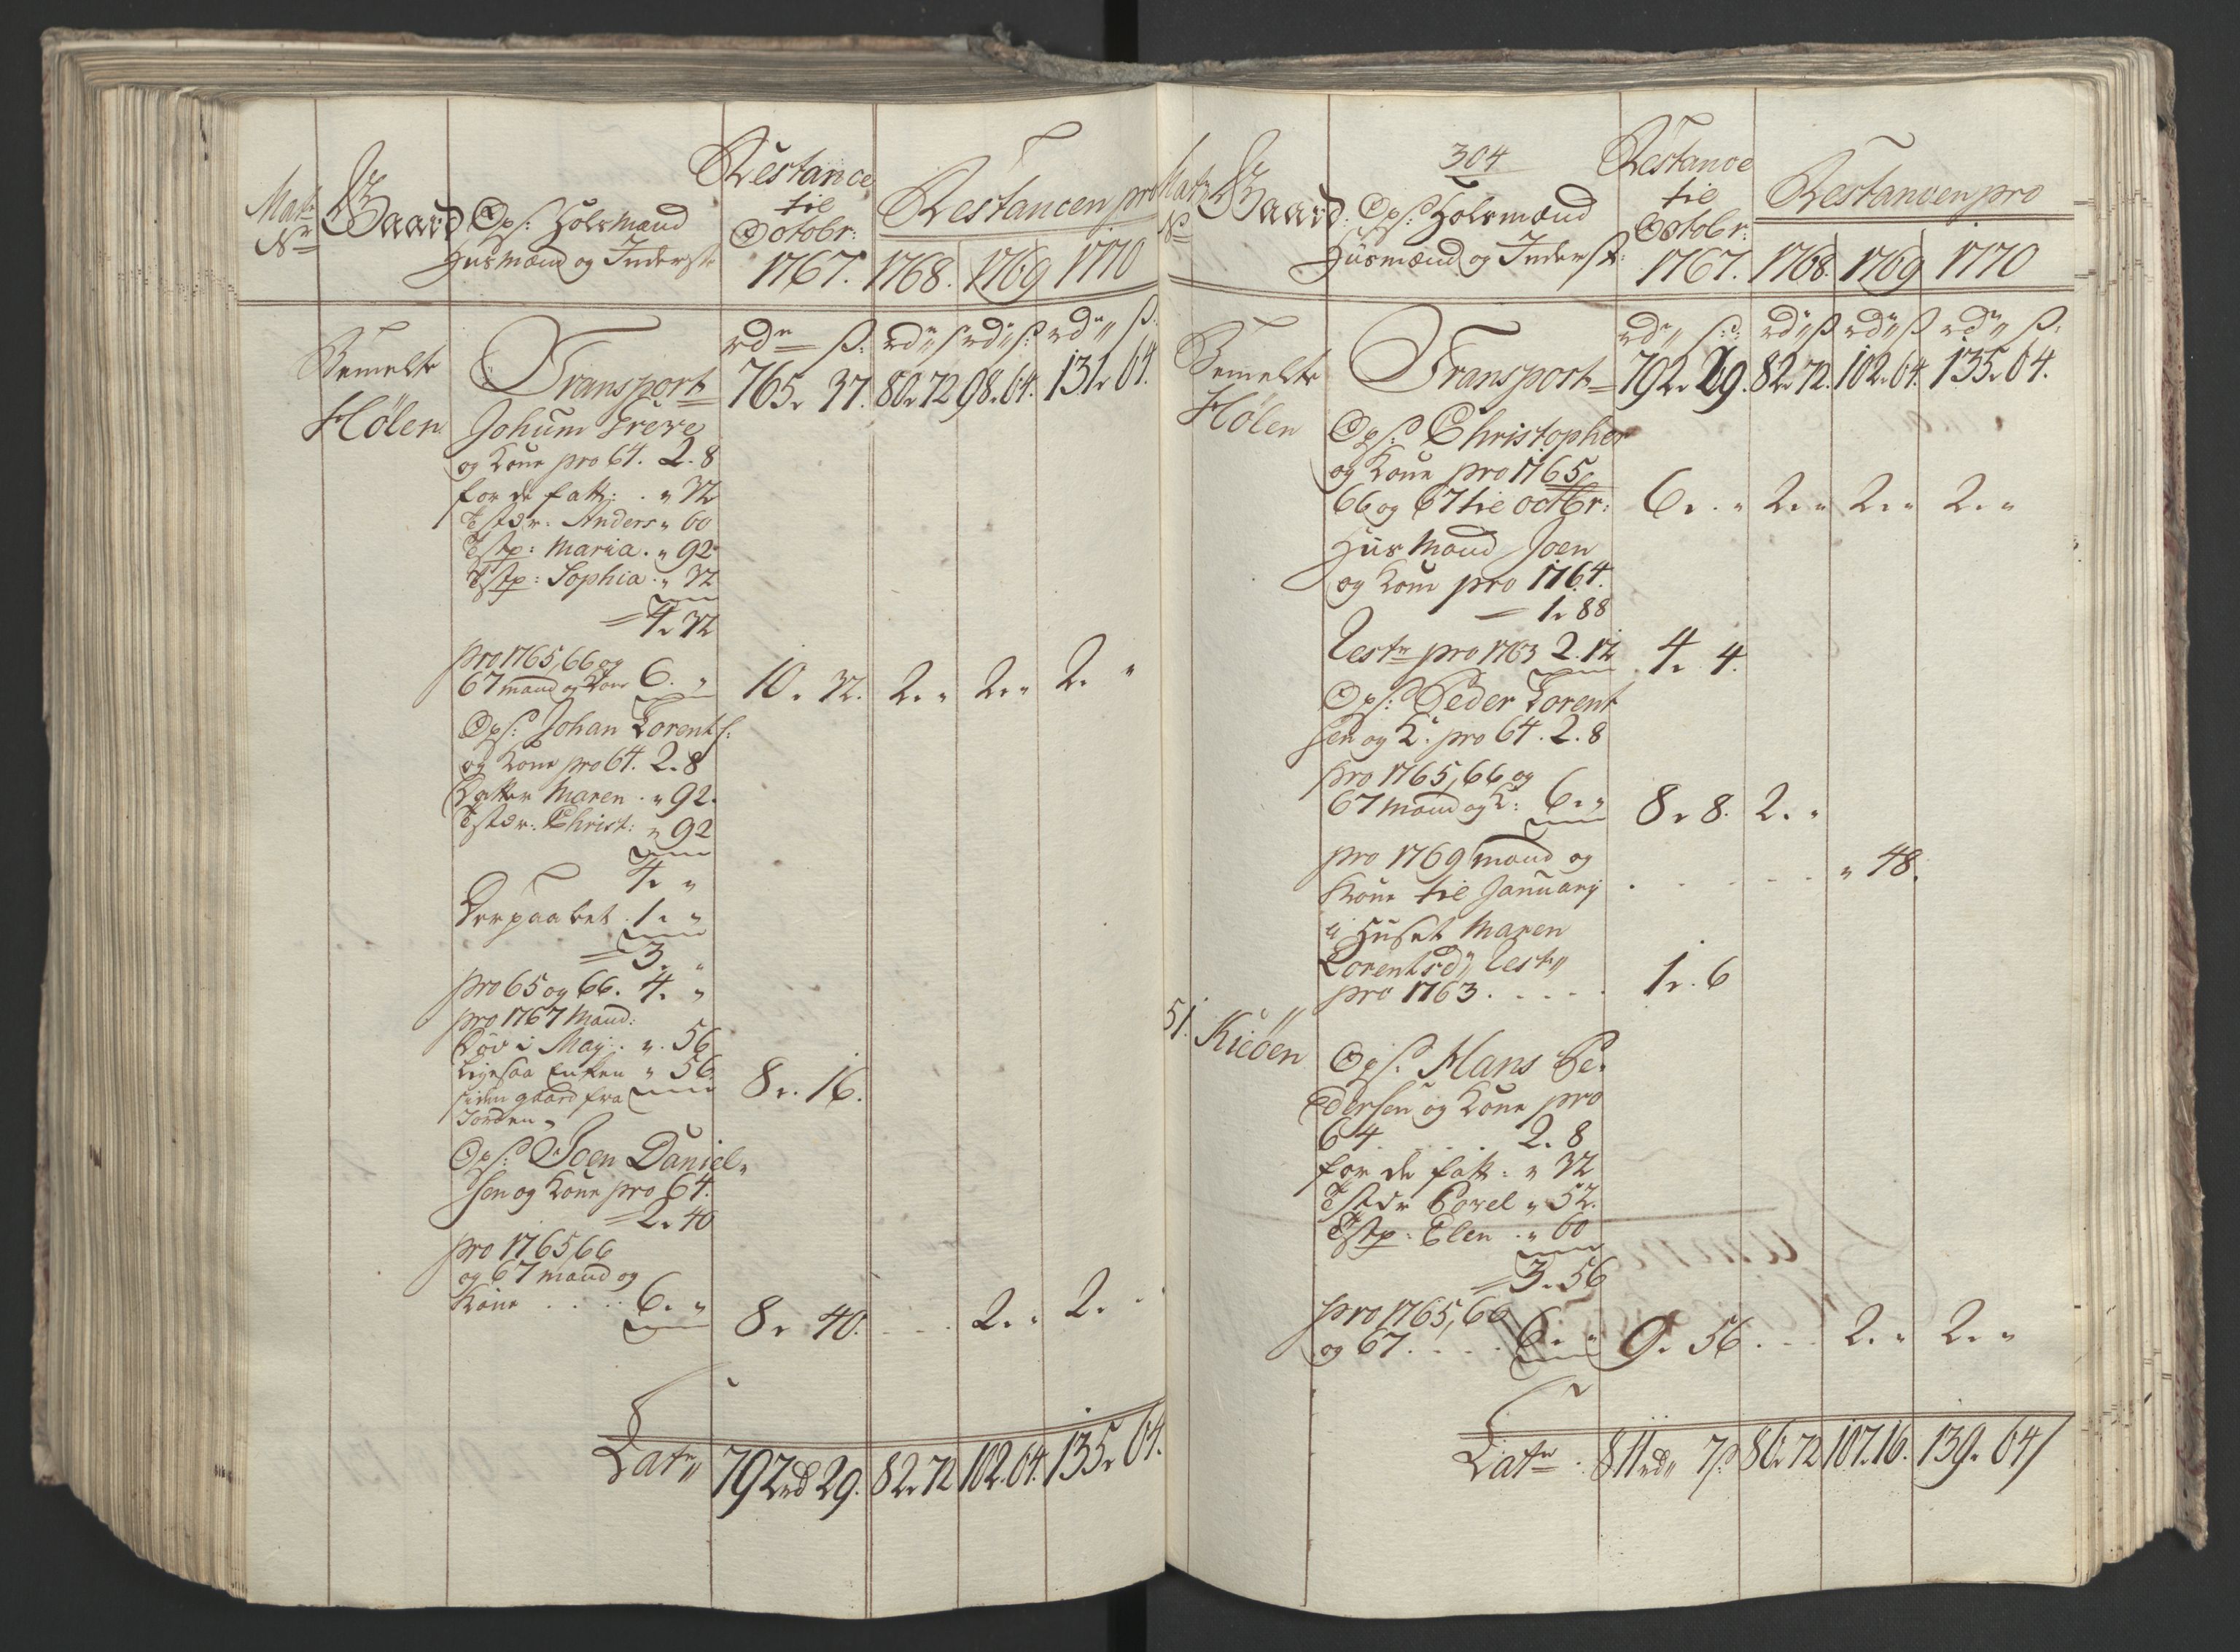 Matr
No
Gaard
Ops: Holsmænd
Huusmænd og Inderste
Restance
til
Octobr:
1767.
Restancen pro
1768. 1769 1770
Bemelte
Hølen
Transport
rdr ß: rdr ß rdr ß: rdr ß:
765. 37. 80. 72 98. 64. 131. 64.
Johum
og Kone pro 64. 2. 8
for de fatt: . " 32
Anders " 60
Maria . " 92
Sophia . " 32
4. 32
pro 1765, 66 og
67 mand og Kone 6. " 10. 32. 2. " 2. " 2. "
Ops: Johan Lorents:
og Kone pro 64. 2. 8
Datter Maren . " 92.
Christ: " 92
4. "
Derpaa bet . 1. "
3. "
pro 65 og 66. 4. "
pro 1767 Mand:
Døv i Maj: . ". 56
Ligesaa Enken " 56 8. 16.
siden gaard fra
Jorden.
Ops: Joen Daniel-
sen og Kone pro 64.
2. 40
pro 1765, 66
og 67 mand og
Kone . . . . 6. " 8. 40. . . . 2. " 2. "
Latr 792 rd 29. 82. 72 102. 64. 135. 64.
Matr
No
Gaard.
304
Ops: Holsmænd
Huusmænd og Inderst:
Restance
til
Octobr:
1767.
Restancen pro
1768. 1769 1770
Bemelte
Hølen
Transport
rdr ß: rdr ß rdr ß rdr ß:
792. 29. 82. 72. 102. 64. 135. 64.
Ops: Christopher
og Kone pro 1765
66 og 67 til octbr: 6. " 2. " 2. " 2. "
Huusmand Joen
og Kone pro 1764.
1. 88
Rest pro 1763 2. 12 4. 4.
Ops: Peder Lorent
sen og K: pro 64. 2. 8
pro 1765, 66 og
67 mand og K: 6. " 8. 8. 2. "
pro 1769 mand og
Kone til Januarij . . . . . " 48.
i Huset Maren
Lorentsd: Rest
pro 1763 . . . . . 1. 6
51. Kieøen
Ops: Hans Pe-
dersen og Kone pro
64 . . . . 2. 8
for de fatt: " 32
Povel " 52.
Elen . " 60
3. 56
pro 1765, 66
og 67 . . . . 6. " 9. 56 . . . 2. " 2. "
Latr . 811 rd 7 ß 86. 72 107. 16. 139. 64